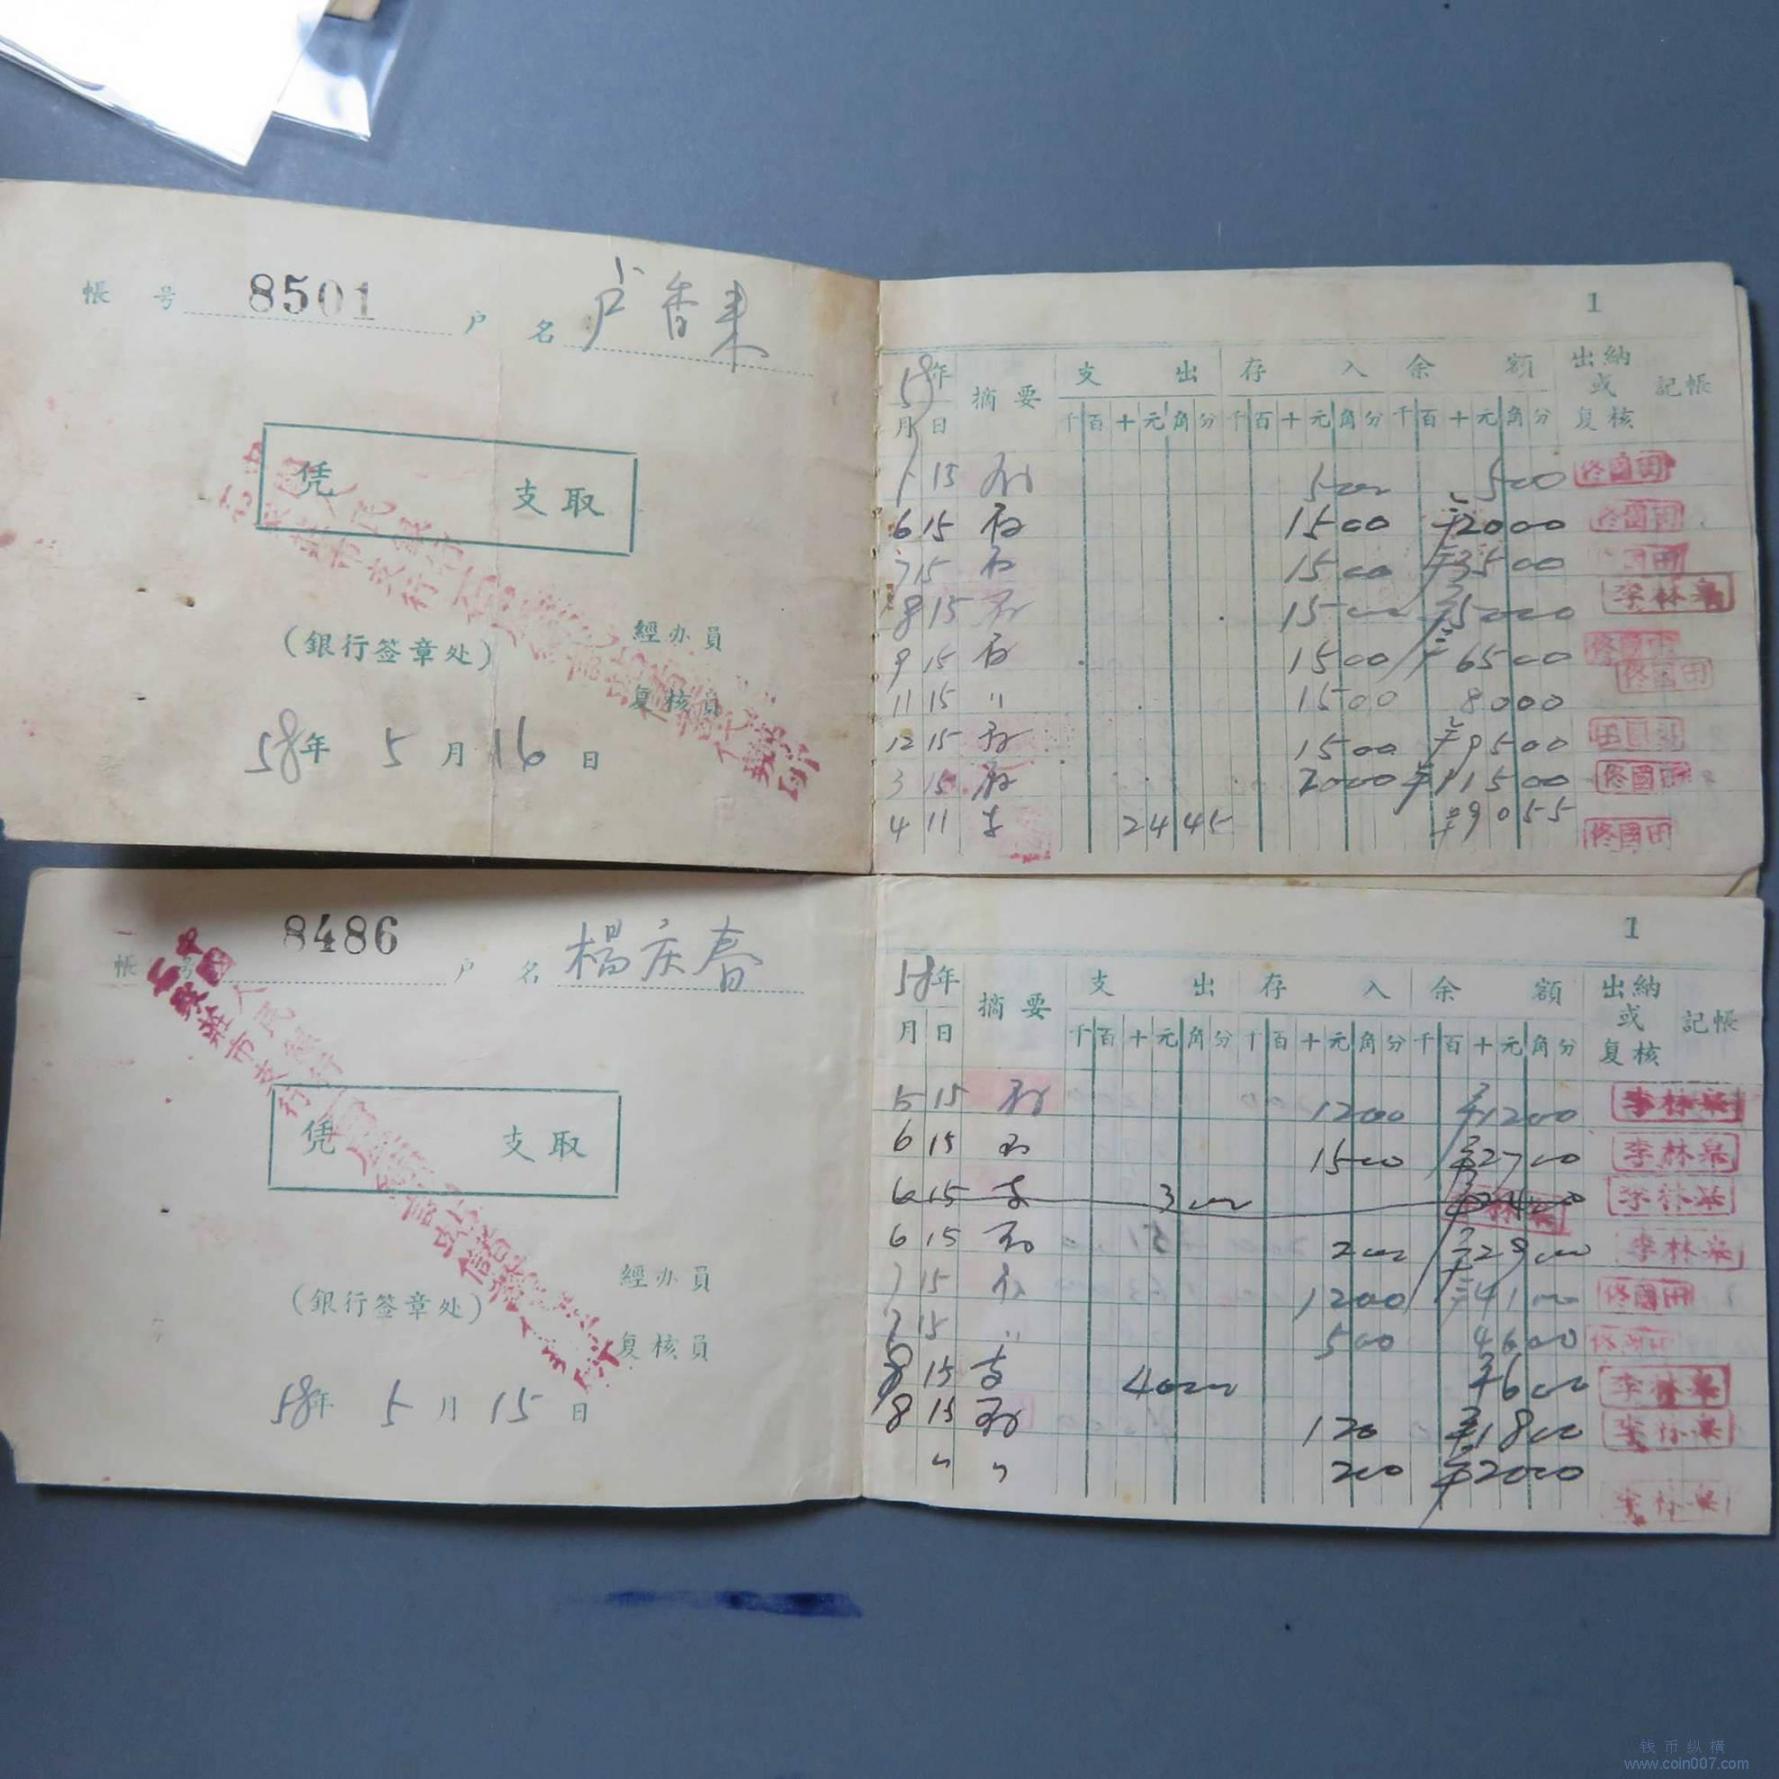 帳号 8501 户名 卢香来
凭 支取
(銀行签章处)
經办員
复核員
58年 5月16日
1
58年 摘要 支出 存入 余額 出納或复核 記帳
月 日 千百十元角分 千百十元角分 千百十元角分
15 500 500 佟國田
6 15 存 1500 2000 佟國田
7 15 存 1500 3500
8 15 存 1500 5000 李林泉
9 15 存 1500 6500 佟國田
佟國田
11 15 〃 1500 8000
12 15 存 1500 9500
3 15 存 2000 11500 佟國田
4 11 支 2445 9055 佟國田
帳号 8486 户名 楊庆春
中国人民銀行
石家莊市支行
凭 支取
(銀行签章处)
經办員
复核員
58年 5月15日
1
58年 摘要 支出 存入 余額 出納或复核 記帳
月 日 千百十元角分 千百十元角分 千百十元角分
5 15 存 1200 1200 李林泉
6 15 存 1500 2700 李林泉
6 15 支 300 2400 李林泉
6 15 存 200 2900 李林泉
7 15 存 1200 4100 佟國田
7 15 〃 500 4600
8 15 支 4000 600 李林泉
8 15 存 120 1800 李林泉
〃 〃 200 2000 李林泉
钱币纵横
www.coin007.com